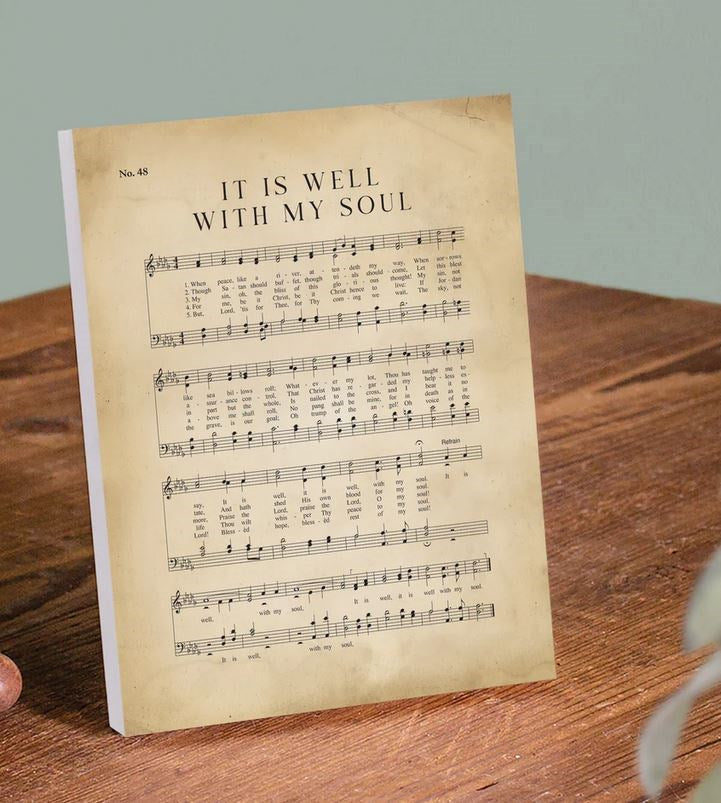 No. 48
IT IS WELL
WITH MY SOUL
1. When peace, like a ri - ver, at - ten - deth my way, When sor - rows
2. Though Sa - tan should buf - fet, though tri - als should come, Let this blest
3. My sin, oh, the bliss of this glo - ri - ous thought! My sin, not
4. For me, be it Christ, be it Christ hence to live: If Jor - dan
5. But, Lord, 'tis for Thee, for Thy com - ing we wait, The sky, not
like sea bil - lows roll; What - ev - er my lot, Thou has taught me to
a - sur - ance con - trol, That Christ has re - gar - ded my help - less es -
in part but the whole, Is nailed to the cross, and I bear it no
a - bove me shall roll, No pang shall be mine, for in death as in
the grave, is our goal; Oh trump of the an - gel! Oh voice of the
Refrain
say, It is well, it is well, with my soul. It is
tate, And hath shed His own blood for my soul.
more, Praise the Lord, praise the Lord, O my soul!
life Thou wilt whis - per Thy peace to my soul.
Lord! Bless - èd hope, bless - èd rest of my soul!
well, with my soul, It is well, it is well with my soul.
It is well, with my soul,